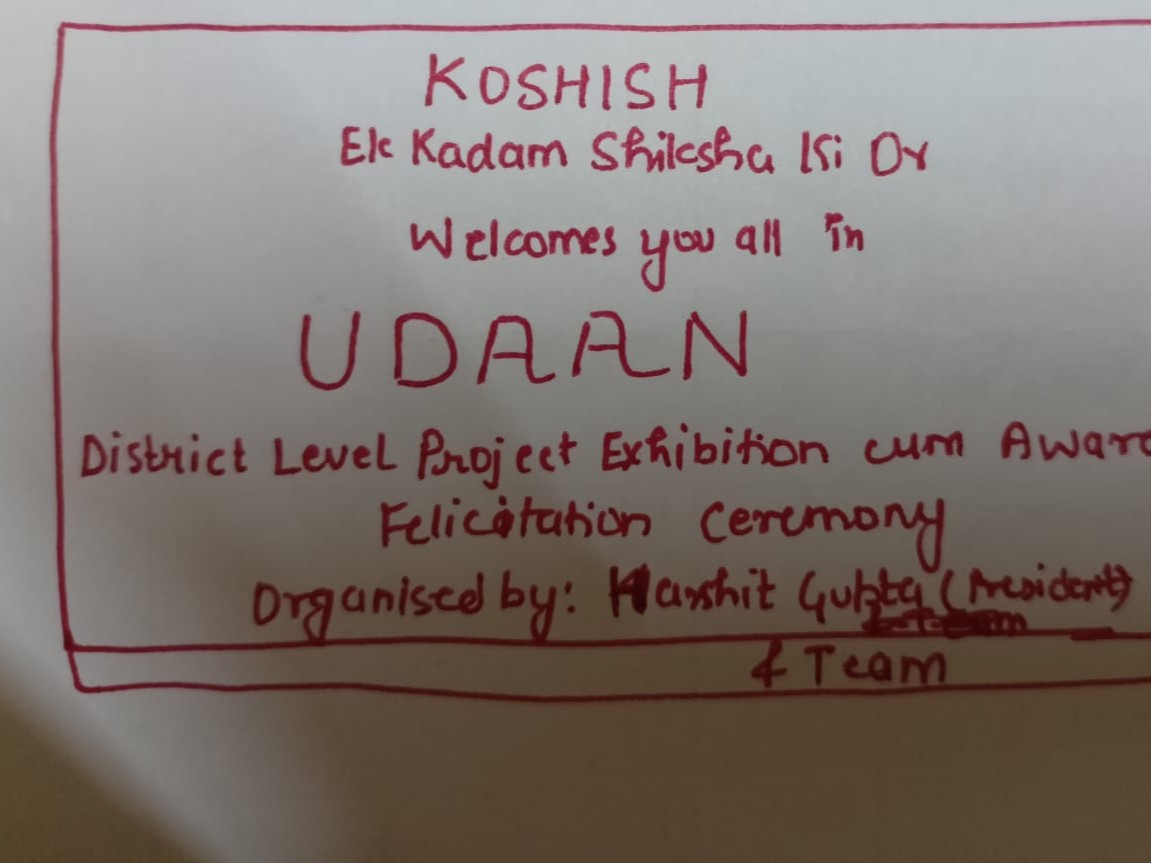 KOSHISH
Ek Kadam Shiksha Ki Or
Welcomes you all in
UDAAN
District Level Project Exhibition cum Award
Felicitation Ceremony
Organised by: Harshit Gupta (President)
& Team